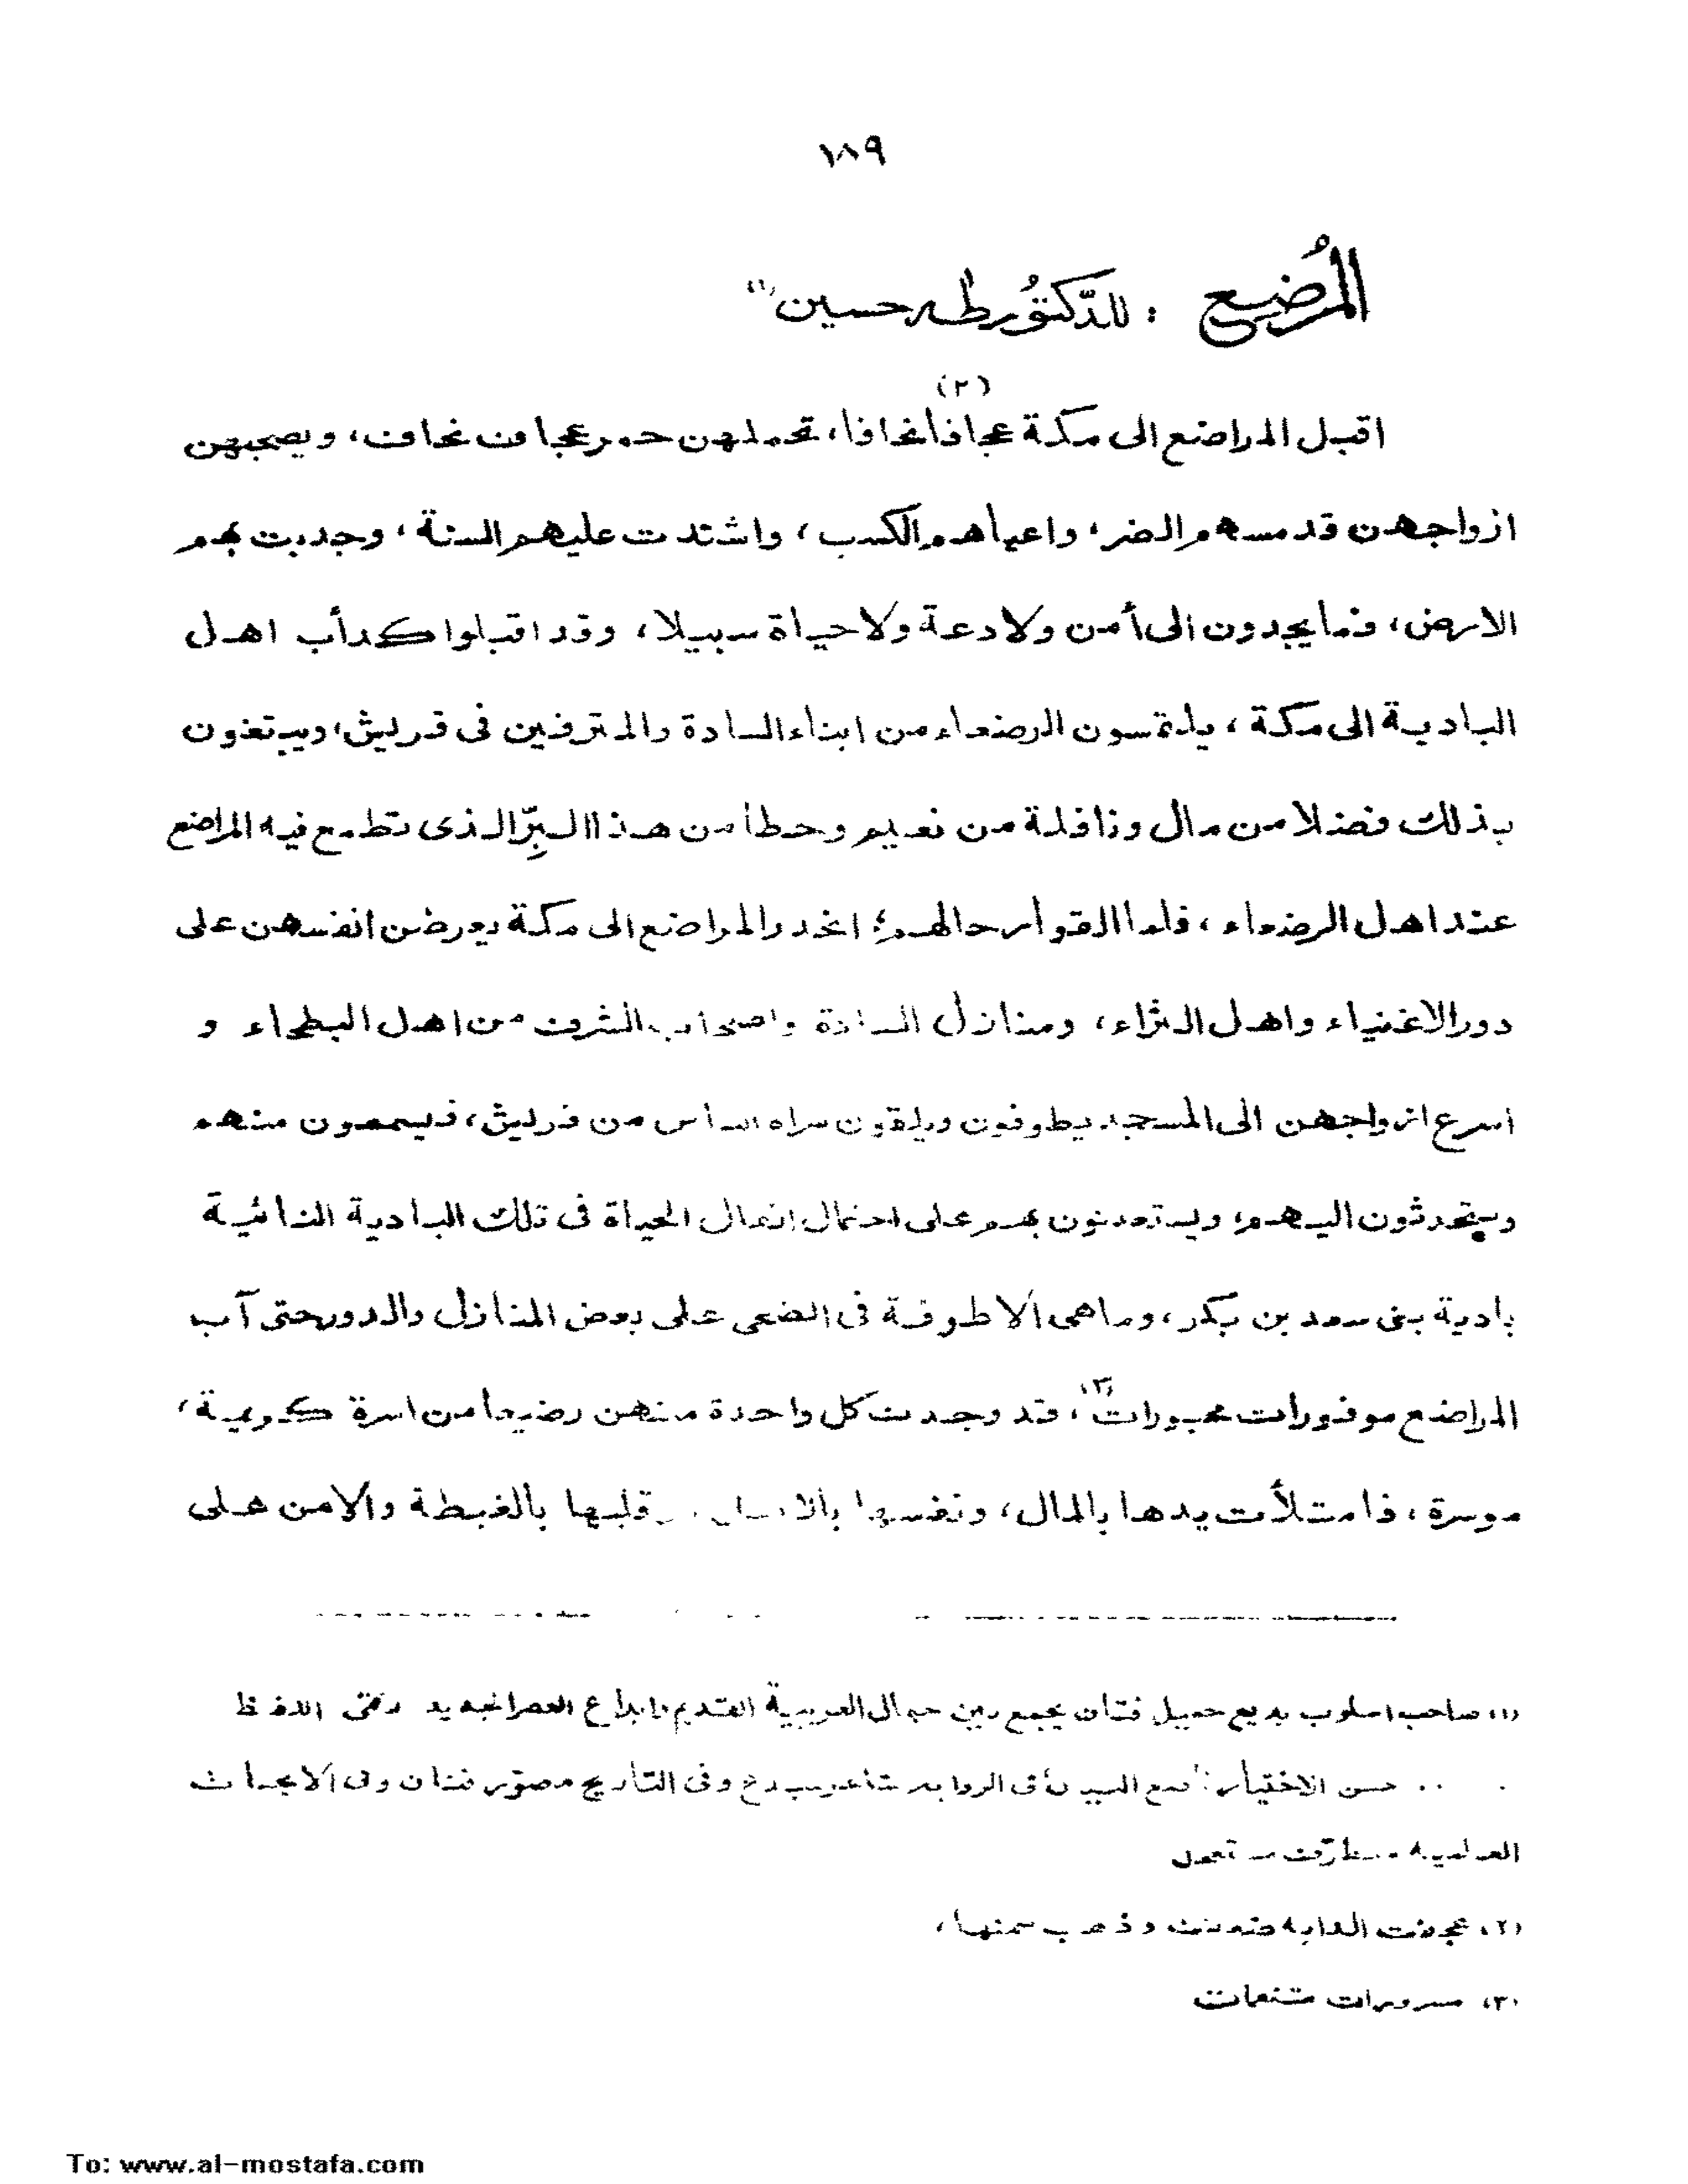 ١٨٩
المُرضع : للدّكتُور طه حسين (١)
(٢)
اقبل المراضع الى مكة عجافا نحافا، تحملهن حمر عجاف نحاف، ويصحبهن
ازواجهن قد مسهم الضر، واعياهم الكسب، واشتدت عليهم السنة، وجدبت بهم
الارض، فما يجدون الى أمن ولا دعة ولا حياة سبيلا، وقد اقبلوا كدأب اهل
البادية الى مكة، يلتمسون الرضعاء من ابناء السادة والمترفين فى قريش، ويبتغون
بذلك فضلا من مال ونافلة من نعيم وحظا من هذا البِرّ الذى تطمع فيه المراضع
عند اهل الرضعاء، فلما القوا رحالهم؛ انحدر المراضع الى مكة يعرضن انفسهن على
دور الاغنياء واهل الثراء، ومنازل السادة واصحاب الشرف من اهل البطحاء و
اسرع ازواجهن الى المسجد يطوفون ويلقون سراة الناس من قريش، فيسمعون منهم
ويتحدثون اليهم، ويستعينون بهم على احتمال اثقال الحياة فى تلك البادية النائية
بادية بنى سعد بن بكر، وما هى الا طوفة فى الضحى على بعض المنازل والدور حتى آب
المراضع موفورات محبورات (٣)، قد وجدت كل واحدة منهن رضيعا من اسرة كريمة،
موسرة، فامتلأت يدها بالمال، ونفسها وقلبها بالغبطة والامن على
(١) صاحب اسلوب بديع جميل فتان يجمع بين جمال العربية القديم وابداع العصر الجديد
حسن الاختيار وفى التاريخ مصوّر فنان وفى الابحاث
العلمية
(٢) عجفت الدابة ضعفت وذهب سمنها،
(٣) مسرورات متنعمات
To: www.al-mostafa.com